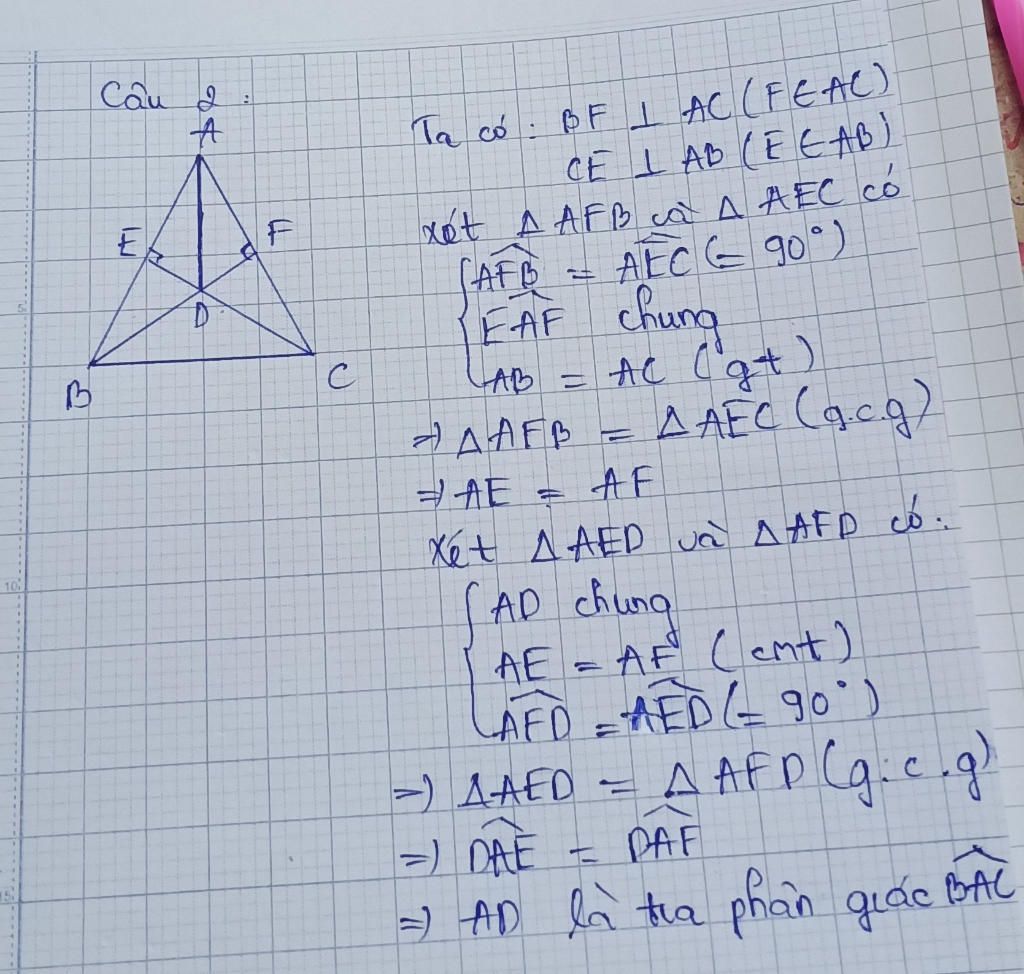 Câu 2:
A
E
F
D
B
C
Ta có: BF ⊥ AC (F∈AC)
CE ⊥ AB (E∈AB)
xét Δ AFB và Δ AEC có
AFB = AEC (= 90°)
EAF chung
AB = AC (gt)
⇒ Δ AFB = Δ AEC (g.c.g)
⇒ AE = AF
Xét Δ AED và Δ AFD có:
AD chung
AE = AF (cmt)
AFD = AED (= 90°)
⇒ Δ AED = Δ AFD (g.c.g)
⇒ DAE = DAF
⇒ AD là tia phân giác BAC
5
10
15